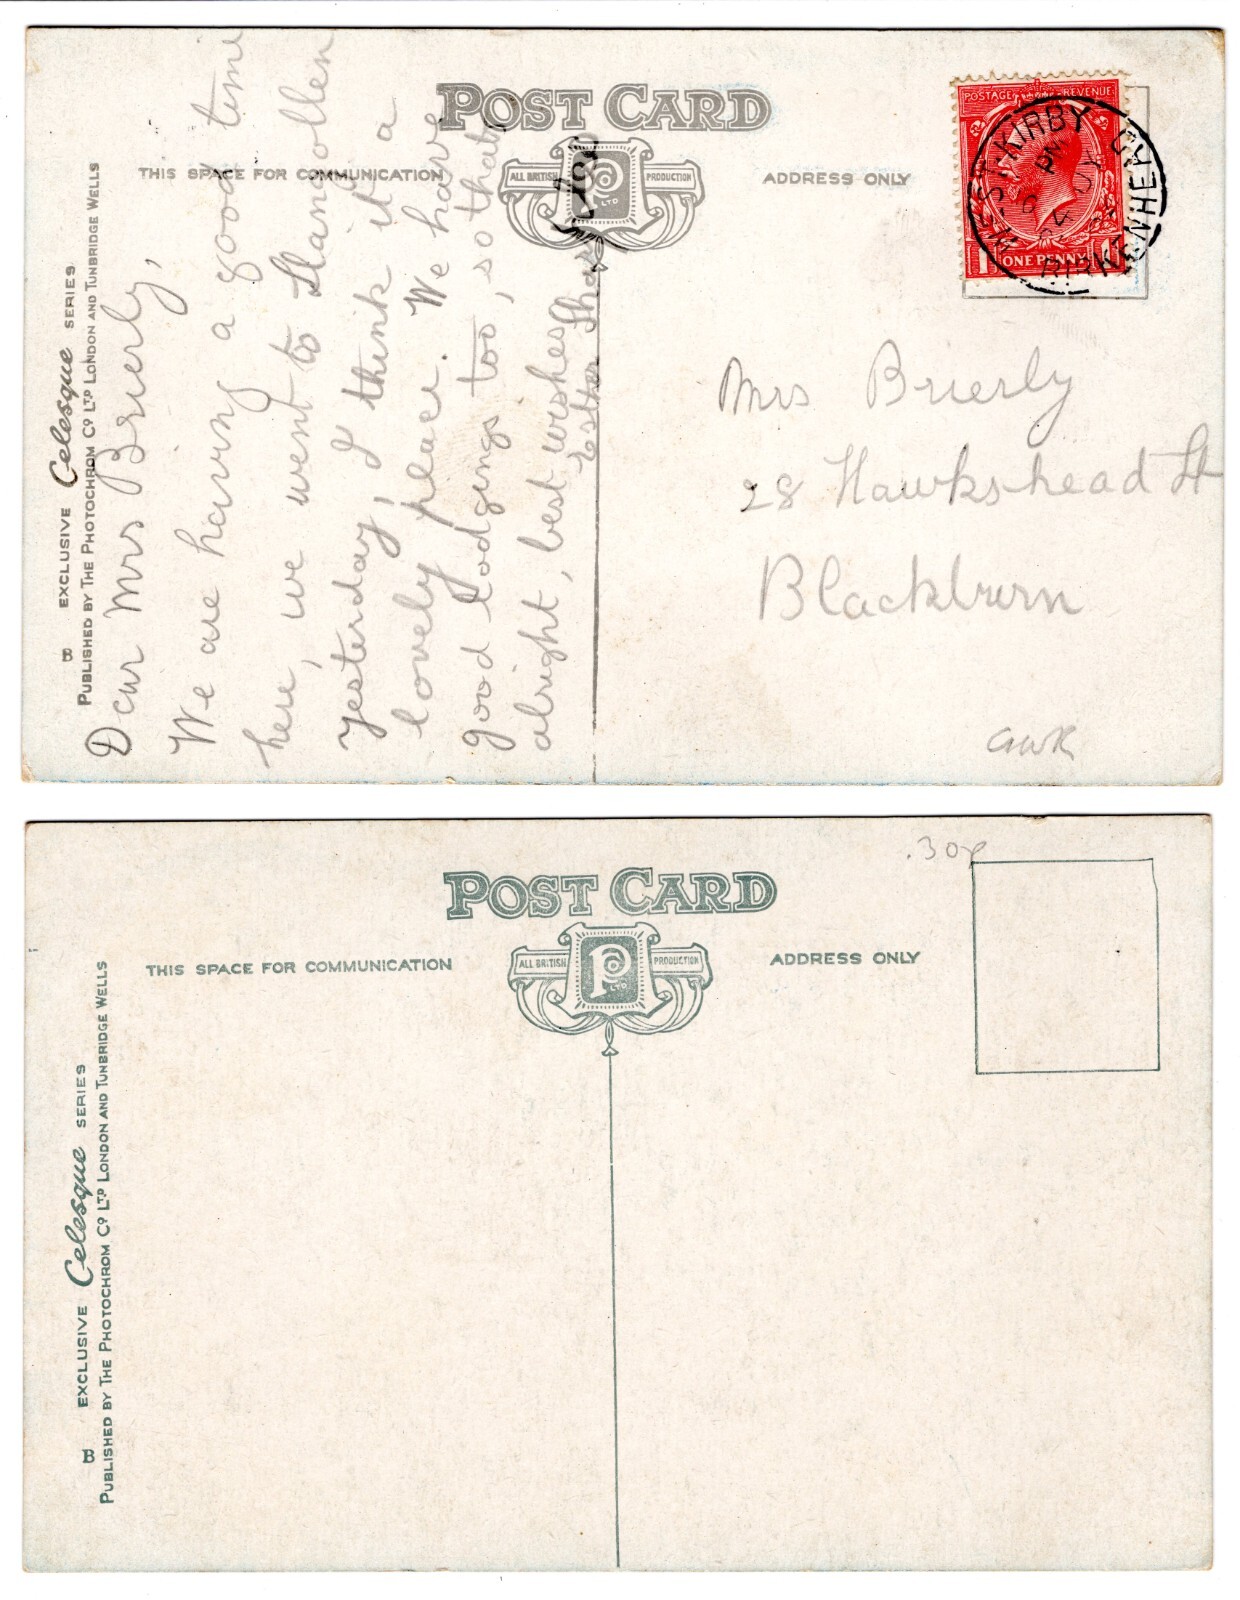 POST CARD
THIS SPACE FOR COMMUNICATION
ALL BRITISH PRODUCTION
P Co LTD
ADDRESS ONLY
B EXCLUSIVE Celesque SERIES
PUBLISHED BY THE PHOTOCHROM Co LTD LONDON AND TUNBRIDGE WELLS
Dear Mrs Brierly,
We are having a good time
here, we went to Llangollen
yesterday, I think it a
lovely place. We have
good lodgings too, so thats
alright, best wishes
Esther
POSTAGE REVENUE
ONE PENNY
WEST KIRBY
BIRKENHEAD
PM
Mrs Brierly
28 Hawkshead St
Blackburn
GWR
.30p
POST CARD
THIS SPACE FOR COMMUNICATION
ALL BRITISH PRODUCTION
P Co LTD
ADDRESS ONLY
B EXCLUSIVE Celesque SERIES
PUBLISHED BY THE PHOTOCHROM Co LTD LONDON AND TUNBRIDGE WELLS